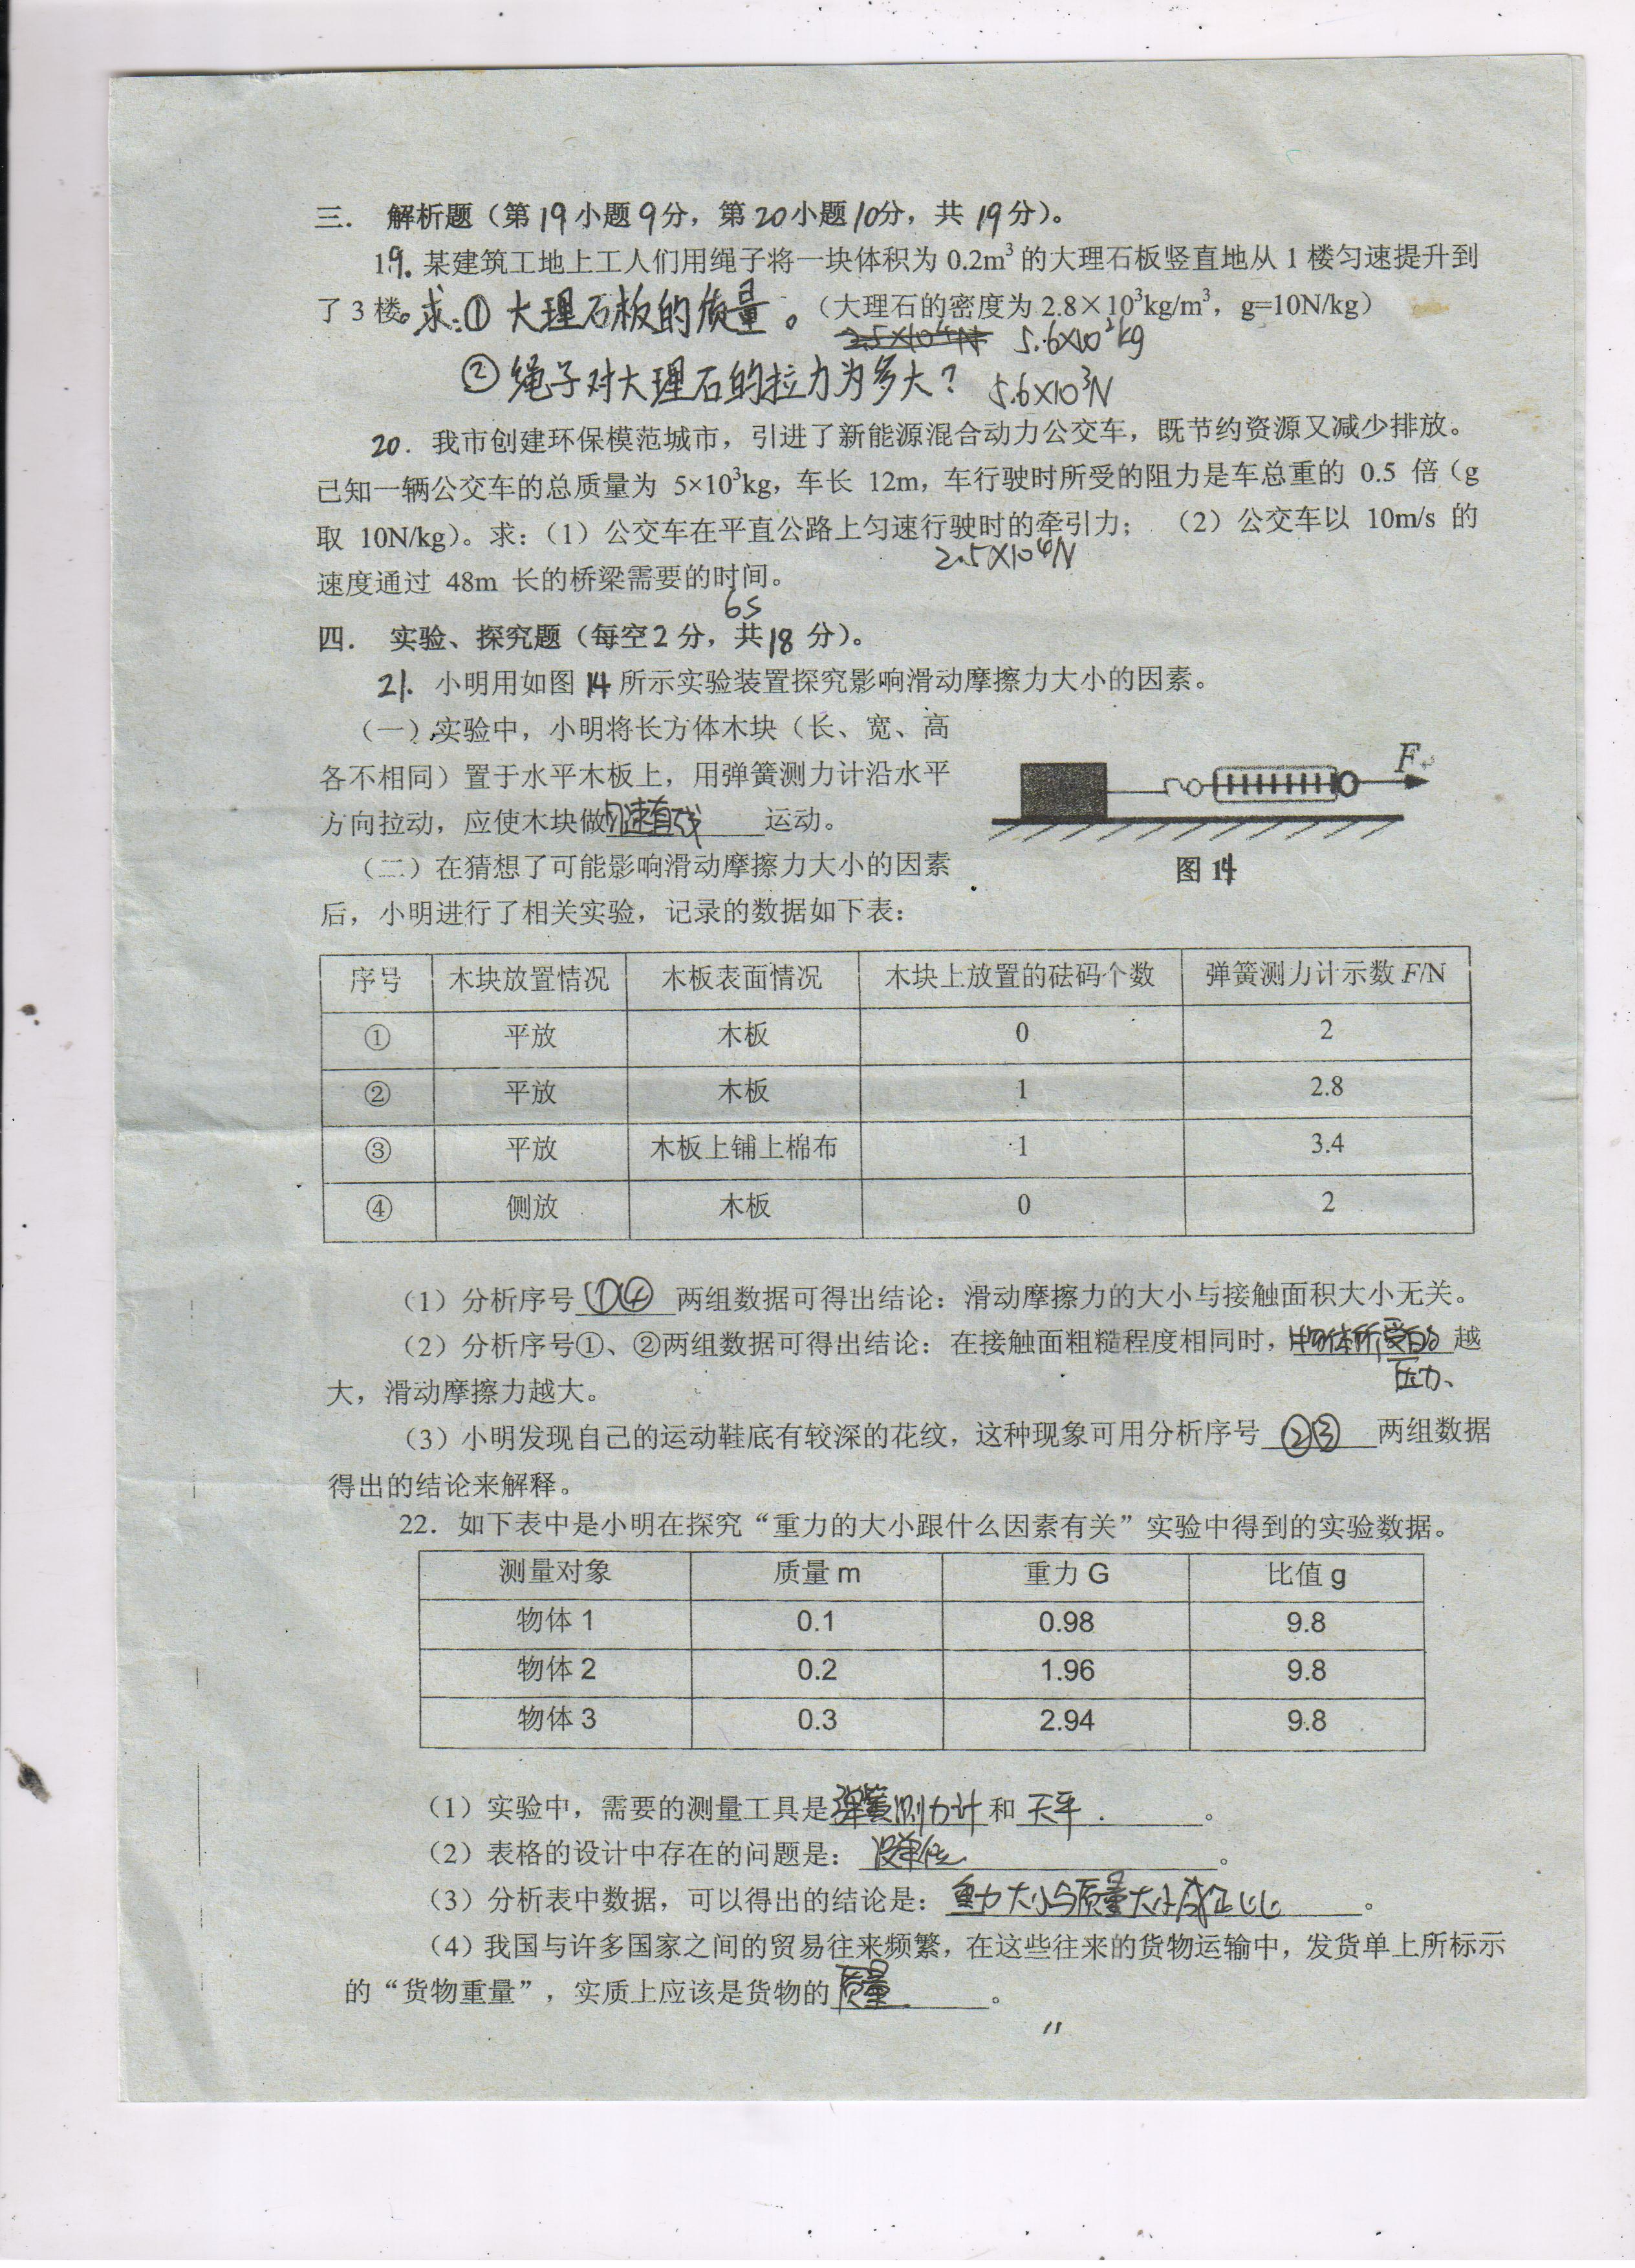 三． 解析题（第19小题9分，第20小题10分，共 19分）。
19. 某建筑工地上工人们用绳子将一块体积为 0.2m³ 的大理石板竖直地从 1 楼匀速提升到
了 3 楼。求：① 大理石板的质量。（大理石的密度为 2.8×10³kg/m³，g=10N/kg）
2.5×10⁴N 5.6×10²kg
② 绳子对大理石的拉力为多大？ 5.6×10³N
20. 我市创建环保模范城市，引进了新能源混合动力公交车，既节约资源又减少排放。
已知一辆公交车的总质量为 5×10³kg，车长 12m，车行驶时所受的阻力是车总重的 0.5 倍（g
取 10N/kg）。求：（1）公交车在平直公路上匀速行驶时的牵引力； （2）公交车以 10m/s 的
2.5×10⁴N
速度通过 48m 长的桥梁需要的时间。
6s
四． 实验、探究题（每空2分，共18 分）。
21. 小明用如图 14 所示实验装置探究影响滑动摩擦力大小的因素。
（一）实验中，小明将长方体木块（长、宽、高
各不相同）置于水平木板上，用弹簧测力计沿水平
方向拉动，应使木块做匀速直线运动。
F
（二）在猜想了可能影响滑动摩擦力大小的因素
图14
后，小明进行了相关实验，记录的数据如下表：
序号 木块放置情况 木板表面情况 木块上放置的砝码个数 弹簧测力计示数 F/N
① 平放 木板 0 2
② 平放 木板 1 2.8
③ 平放 木板上铺上棉布 1 3.4
④ 侧放 木板 0 2
（1）分析序号 ①④ 两组数据可得出结论：滑动摩擦力的大小与接触面积大小无关。
（2）分析序号①、②两组数据可得出结论：在接触面粗糙程度相同时，物体所受的越
压力
大，滑动摩擦力越大。
（3）小明发现自己的运动鞋底有较深的花纹，这种现象可用分析序号 ②③ 两组数据
得出的结论来解释。
22．如下表中是小明在探究“重力的大小跟什么因素有关”实验中得到的实验数据。
测量对象 质量 m 重力 G 比值 g
物体 1 0.1 0.98 9.8
物体 2 0.2 1.96 9.8
物体 3 0.3 2.94 9.8
（1）实验中，需要的测量工具是弹簧测力计和 天平 。
（2）表格的设计中存在的问题是： 没单位 。
（3）分析表中数据，可以得出的结论是： 重力大小与质量大小成正比 。
（4）我国与许多国家之间的贸易往来频繁，在这些往来的货物运输中，发货单上所标示
的“货物重量”，实质上应该是货物的质量 。